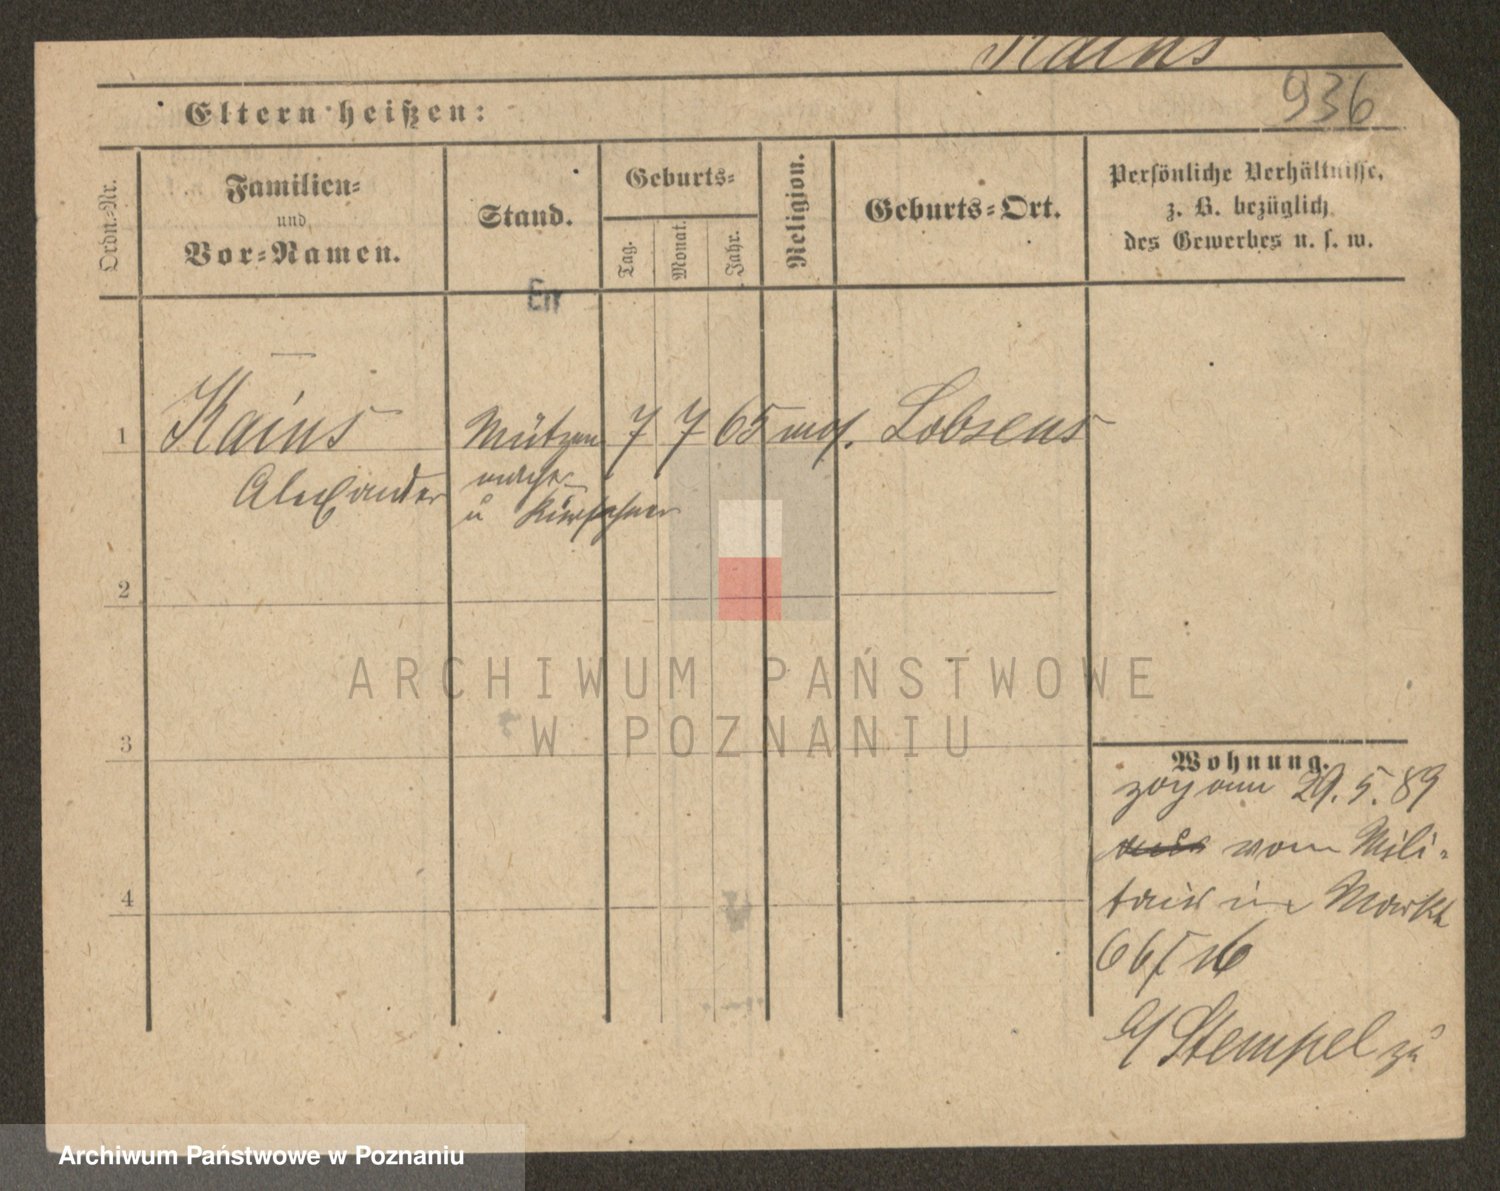 Kains
936
Eltern heißen:
Ordn.-Nr.
Familien-
und
Vor-Namen.
Stand.
Geburts-
Tag.
Monat.
Jahr.
Religion.
Geburts-Ort.
Persönliche Verhältnisse,
z. B. bezüglich
des Gewerbes u. s. w.
1 Kains Mützen 7 7 65 mos. Lobsens
Alexander macher
u Kürschner
2
3
4
Wohnung.
zog am 29.5.89
vom Mili-
tair in Markt
66/
b/ Stempel zu
ARCHIWUM PAŃSTWOWE
W POZNANIU
Archiwum Państwowe w Poznaniu